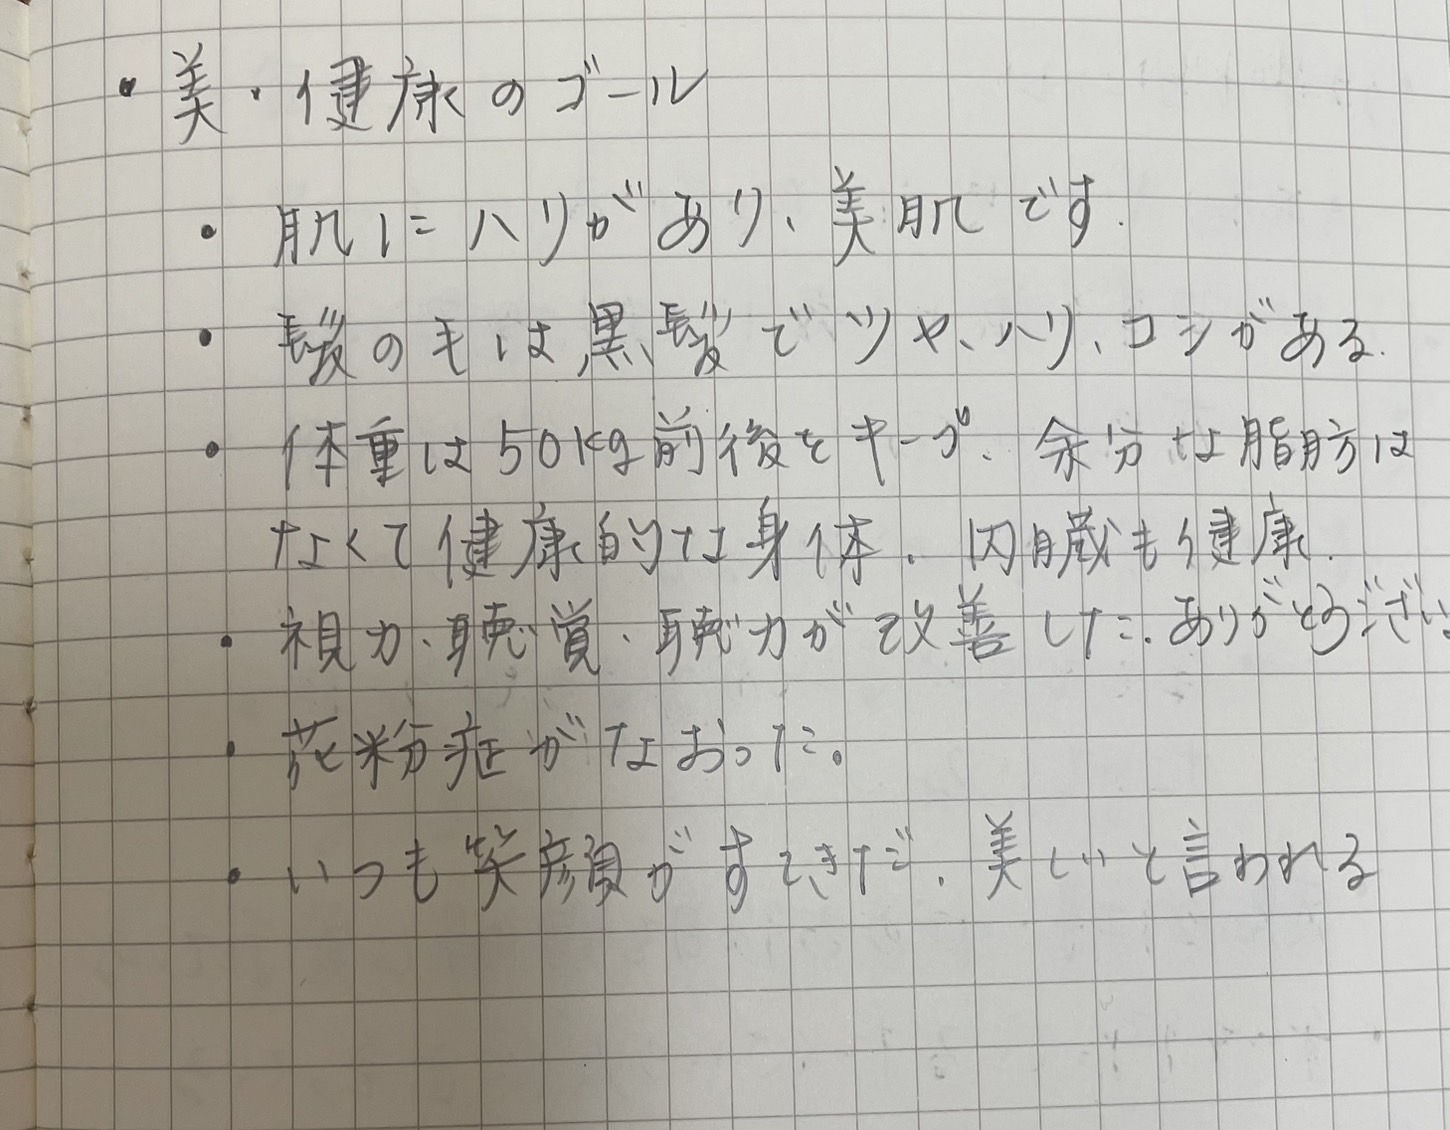 ・美・健康のゴール
・肌にハリがあり、美肌です.
・髪の毛は黒髪でツヤ、ハリ、コシがある.
・体重は50kg前後をキープ、余分な脂肪は
なくて健康的な身体. 内臓も健康.
・視力・聴覚・聴力が改善した.ありがとうござい
・花粉症がなおった。
・いつも笑顔がすてきだ.美しいと言われる